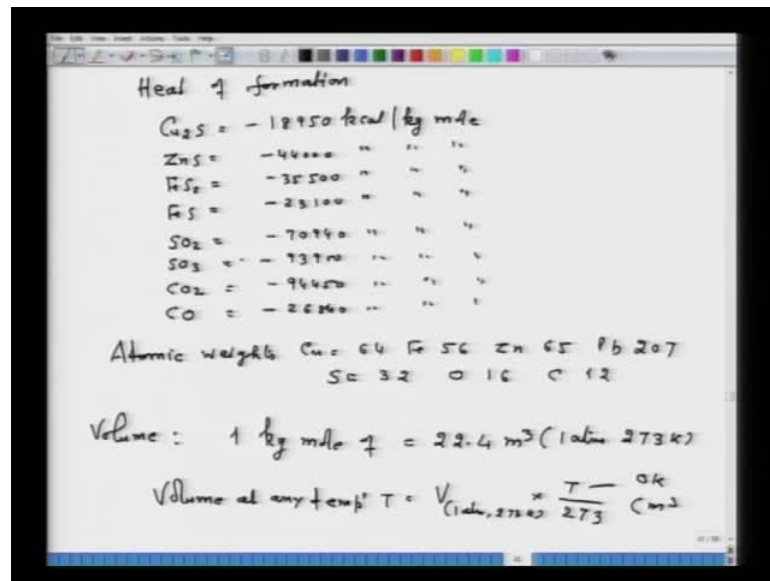 Heat of formation
Cu2S = - 18950 kcal / kg mole
ZnS = - 44000 " " "
FeS2 = - 35500 " " "
FeS = - 23100 " " "
SO2 = - 70940 " " "
SO3 = - 93900 " " "
CO2 = - 94450 " " "
CO = - 26840 " " "
Atomic weights Cu = 64 Fe 56 Zn 65 Pb 207
S = 32 O 16 C 12
Volume : 1 kg mole of = 22.4 m3 (1 atm 273 K)
Volume at any temp T = V(1 atm, 273 K) × T / 273 — OK (m3